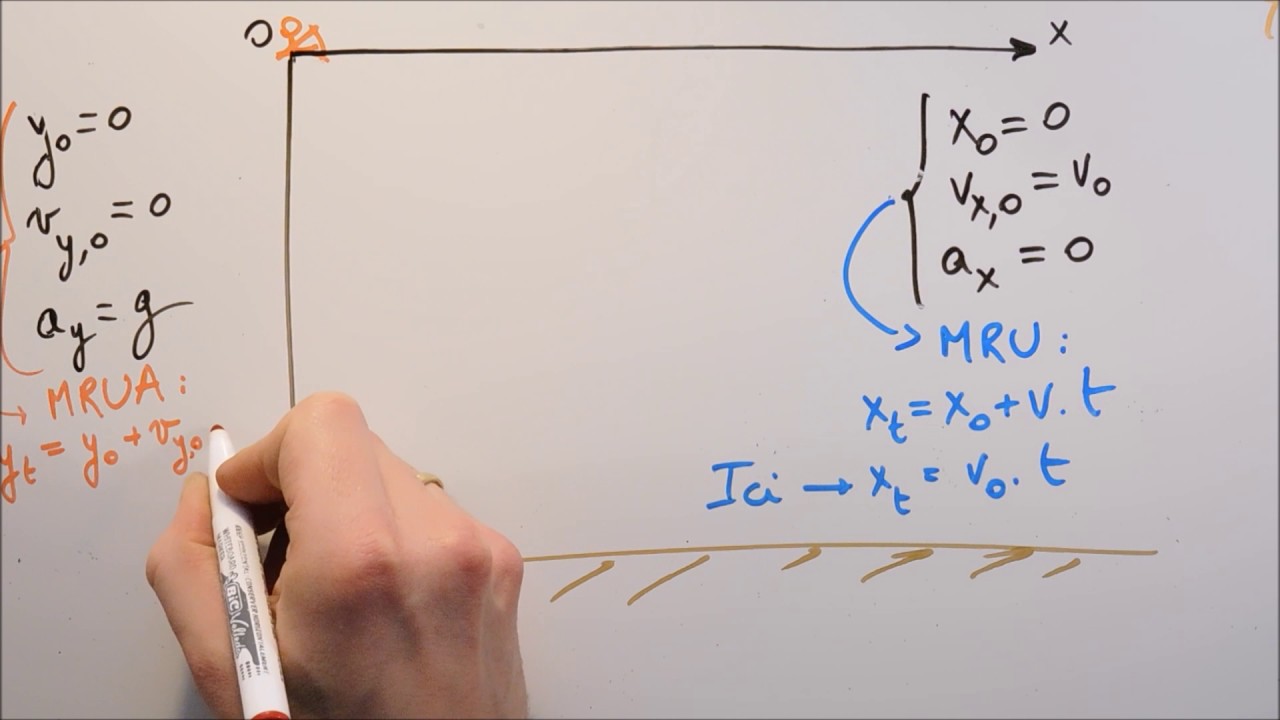 O x
y₀ = 0
v_y,₀ = 0
a_y = g
→ MRUA :
y_t = y₀ + v_y,₀
x₀ = 0
v_x,₀ = v₀
a_x = 0
MRU :
x_t = x₀ + v . t
Ici → x_t = v₀ . t
BIC Velleda